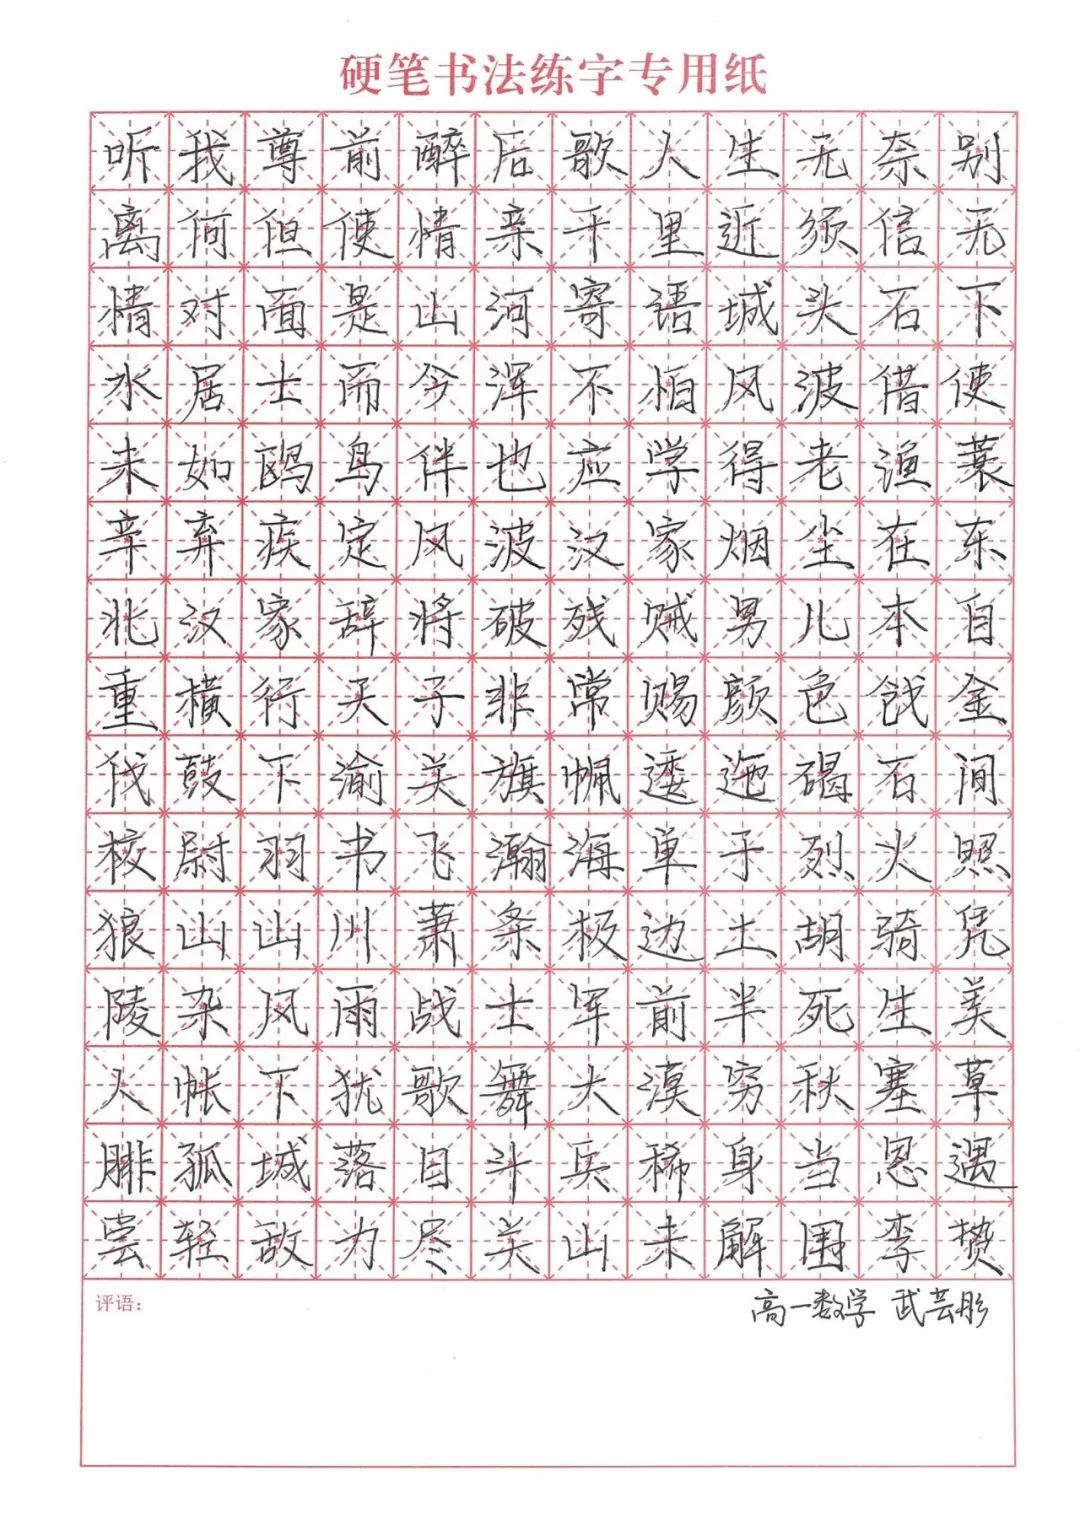 硬笔书法练字专用纸
听我尊前醉后歌人生无奈别
离何但使情亲千里近须信无
情对面是山河寄语城头石下
水居士而今浑不怕风波借使
未如鸥鸟伴也应学得老渔蓑
辛弃疾定风波汉家烟尘在东
北汉家辞将破残贼男儿本自
重横行天子非常赐颜色戗金
伐鼓下渝关旗佩逶迤碣石间
校尉羽书飞瀚海单于烈火照
狼山山川萧条极边土胡骑凭
陵杂风雨战士军前半死生美
人帐下犹歌舞大漠穷秋塞草
腓孤城落日斗兵稀身当恩遇
尝轻敌力尽关山未解围李贽
评语：
高一数学 武芸彤